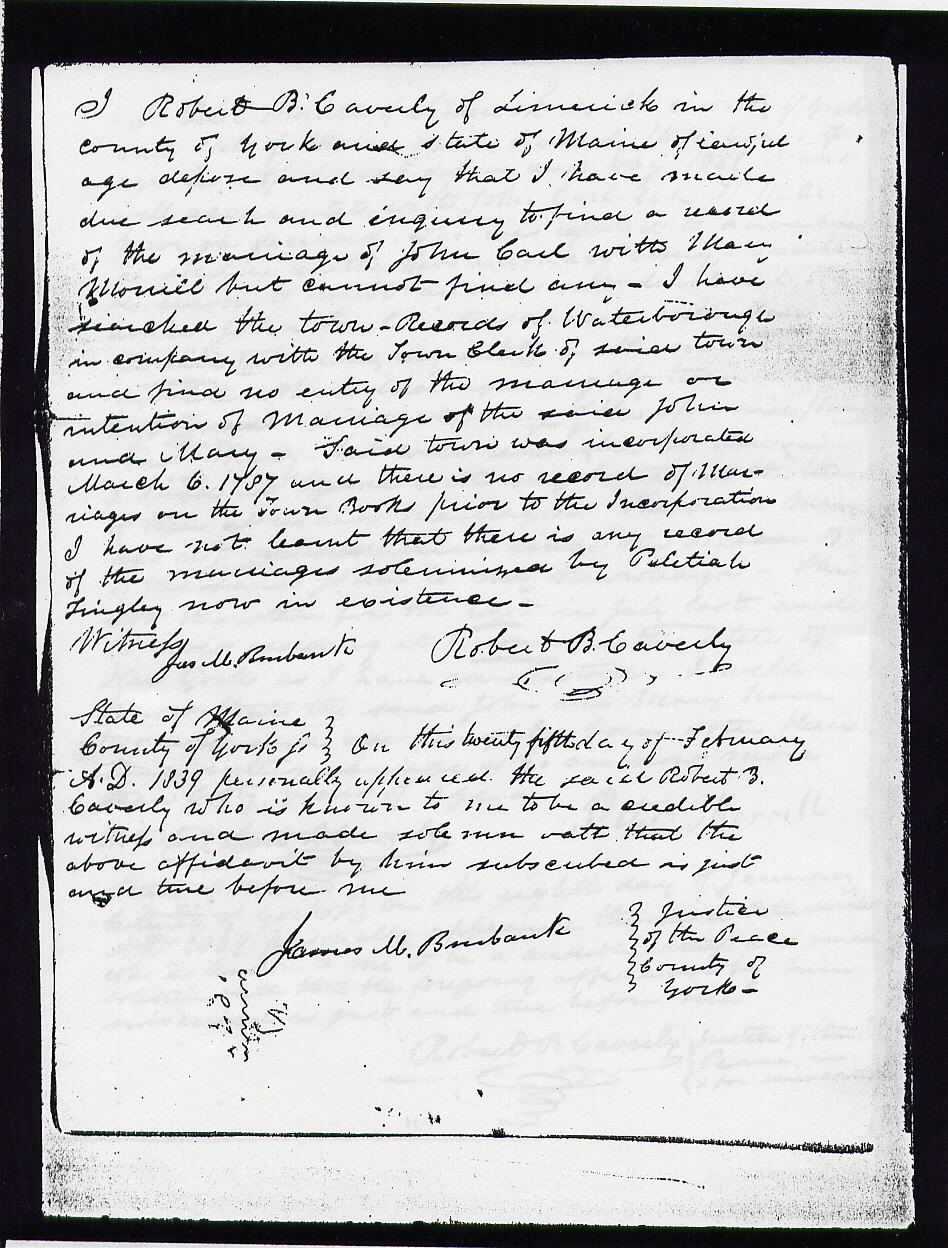 I Robert B. Caverly of Limerick in the
county of York and state of Maine of lawful
age depose and say that I have made
due search and inquiry to find a record
of the marriage of John Carl with Mary
Morrill but cannot find any - I have
searched the town - Records of Waterborough
in company with the Town Clerk of said town
and find no entry of the marriage or
intention of Marriage of the said John
and Mary - Said town was incorporated
March 6. 1787 and there is no record of Mar-
riages on the Town Books prior to the Incorporation
I have not learnt that there is any record
of the marriages solemnized by Peletiah
Tingley now in existence -
Witness
Jas M. Burbank Robert B. Caverly
State of Maine
County of York ss } On this twenty fifth day of February
A.D. 1839 personally appeared the said Robert B.
Caverly who is known to me to be a credible
witness and made solemn oath that the
above affidavit by him subscribed is just
and true before me
James M. Burbank } Justice
of the Peace
County of
York -